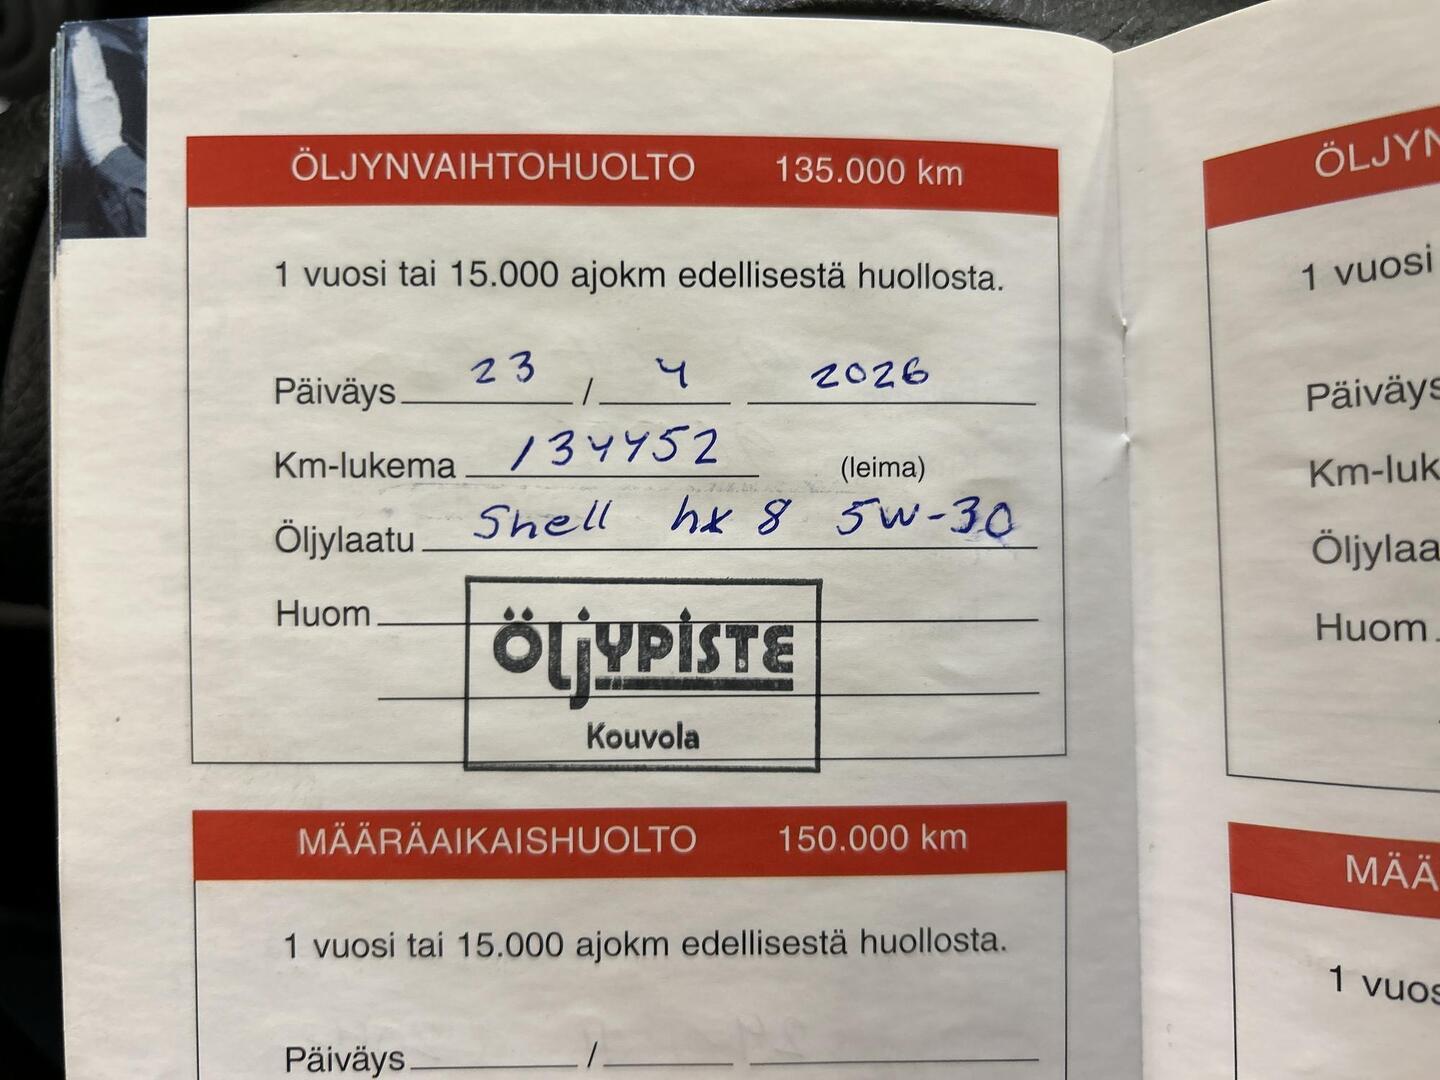 ÖLJYNVAIHTOHUOLTO 135.000 km
1 vuosi tai 15.000 ajokm edellisestä huollosta.
Päiväys 23 / 4 2026
Km-lukema 134452 (leima)
Öljylaatu Shell hx 8 5W-30
Huom
ÖLJYPISTE
Kouvola
MÄÄRÄAIKAISHUOLTO 150.000 km
1 vuosi tai 15.000 ajokm edellisestä huollosta.
Päiväys /
ÖLJYN
1 vuosi
Päiväys
Km-luk
Öljylaa
Huom
MÄÄ
1 vuos